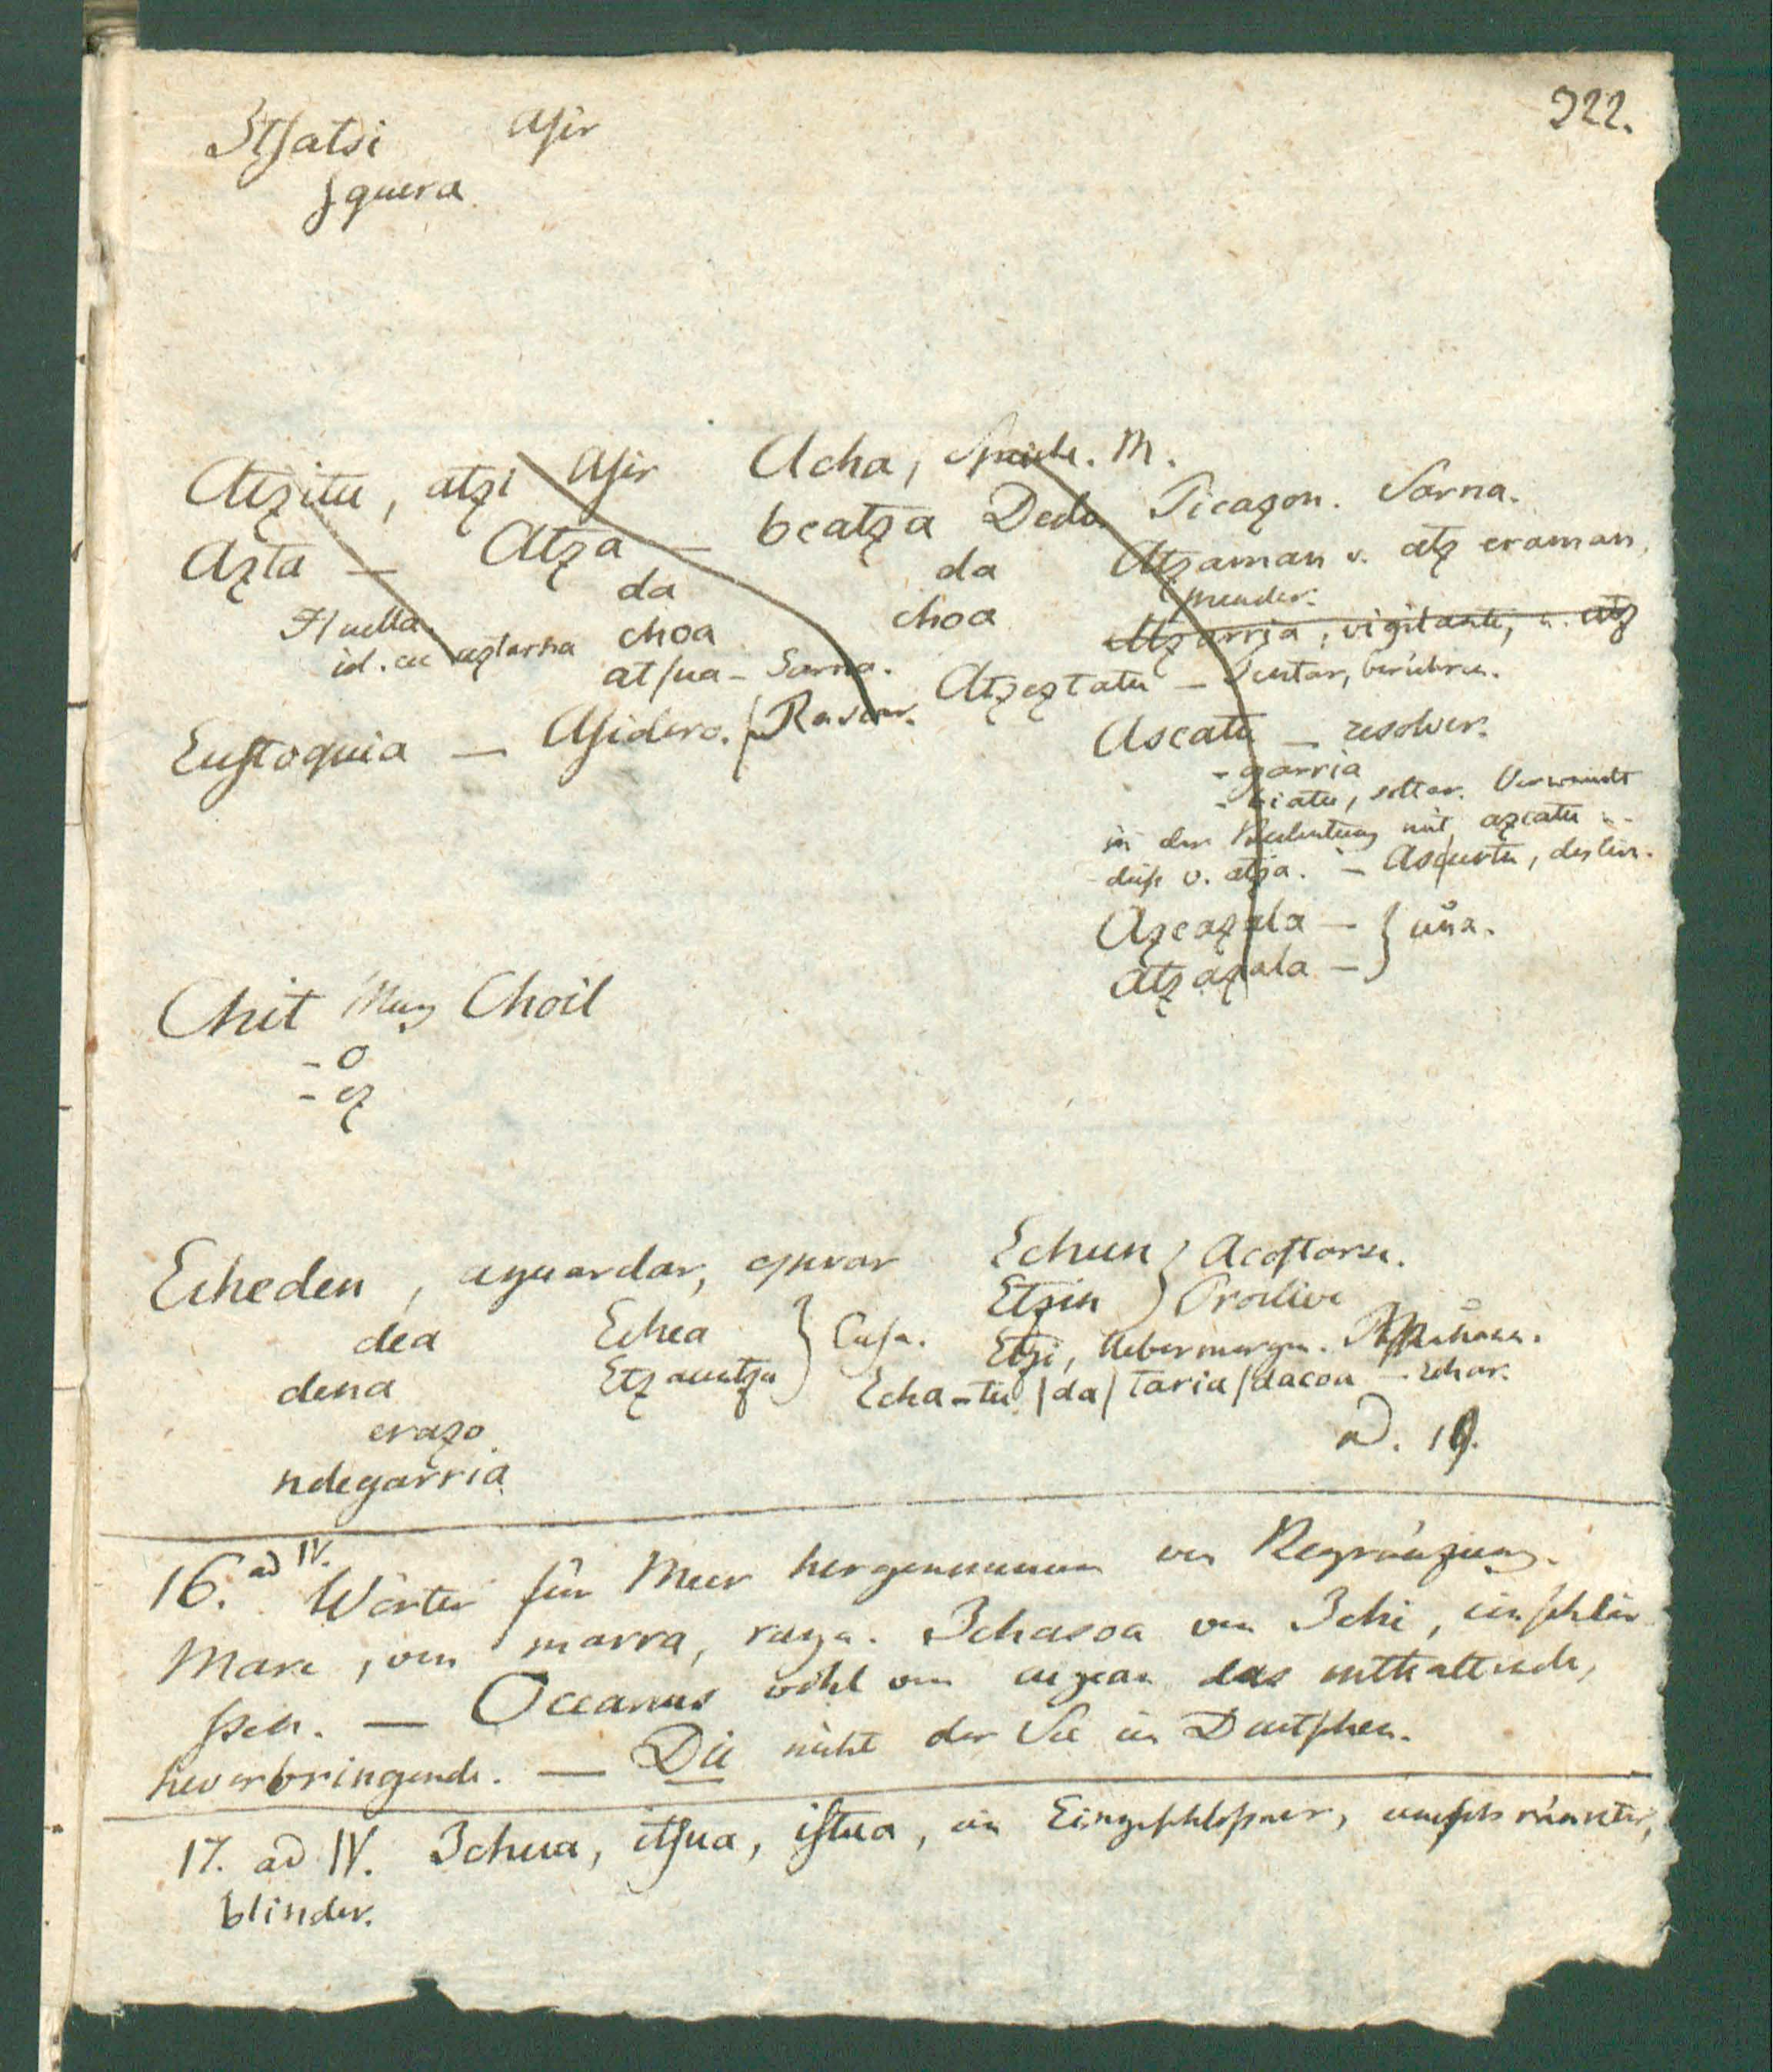 322.
Itsatsi asir
squera
Atzitu, atzi asir Acha, M.
Azta — Atza — beatza Dedo Picazon. Sarna.
da da Atzaman v. atz eraman,
Huella choa choa prender.
id. ac aztarna atsua - Sarna. Atzarria, vigilante, v. atz
Atzeztatu — Tentar, berühren.
Eustoquia — Asidero. Rascar.
Ascatu — resolver.
- garria
- biatu, soltar. Verwandt
in der Bedeutung mit azcatu
dies v. atza. — Ascurtu, deslin.
Azcazala — } uña.
Atzazala —
Chit Muy Choil
- o
- ez
Echeden, aguardar, esperar Echun } Acostarse.
Etzin Proclive
dea Echea } Casa. Etzi, Uebermorgen.
dena Etzauntza Echa-tu / da / taria / dacoa — echar.
erazo ad. 19.
ndegarria
16. ad IV. Wörter für Meer hergenommen von Begränzung.
Mare, von marra, raya. Ichasoa von Ichi, einschlie
ssen. — Oceanus wohl von das enthaltende,
hervorbringende. — Die nicht der See im Deutschen.
17. ad IV. Ichua, itsua, istua, ein Eingeschlossner, umschränkter,
blinder.